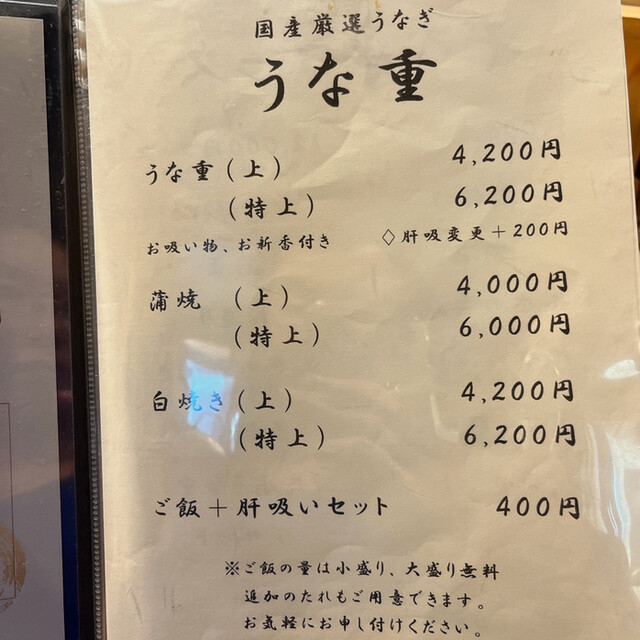 国産厳選うなぎ
うな重
うな重(上) 4,200円
(特上) 6,200円
お吸い物、お新香付き ◇肝吸変更+200円
蒲焼 (上) 4,000円
(特上) 6,000円
白焼き(上) 4,200円
(特上) 6,200円
ご飯+肝吸いセット 400円
※ご飯の量は小盛り、大盛り無料
追加のたれもご用意できます。
お気軽にお申し付けください。